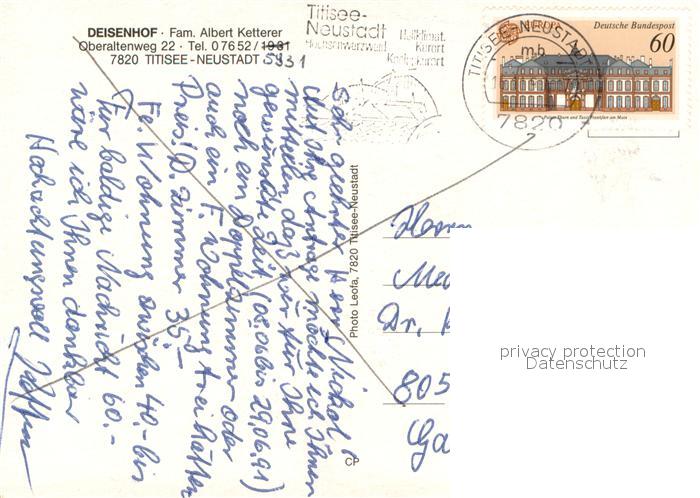 DEISENHOF · Fam. Albert Ketterer
Oberaltenweg 22 · Tel. 07652/1931
5931
7820 TITISEE-NEUSTADT
Titisee-
Neustadt
Hochschwarzwald
Heilklimat.
Kurort
Kneippkurort
TITISEE-NEUSTADT
mb
7820
EUROPA
Deutsche Bundespost
60
Palais Thurn und Taxis Frankfurt am Main
Sehr geehrter Herr Nickol
Auf Ihre Anfrage möchte ich Ihnen
mitteilen, daß wir für Ihre
gewünschte Zeit (05.06 bis 29.06.91)
noch ein Doppelzimmer oder
auch ein F. Wohnung frei hätten
Preis: D. Zimmer 35.-
Fe Wohnung zwischen 40.- bis
Für baldige Nachricht 60.-
wäre ich Ihnen dankbar
Hochachtungsvoll
Photo Leofa, 7820 Titisee-Neustadt
CP
Herrn
Dr.
805
Ga
privacy protection
Datenschutz